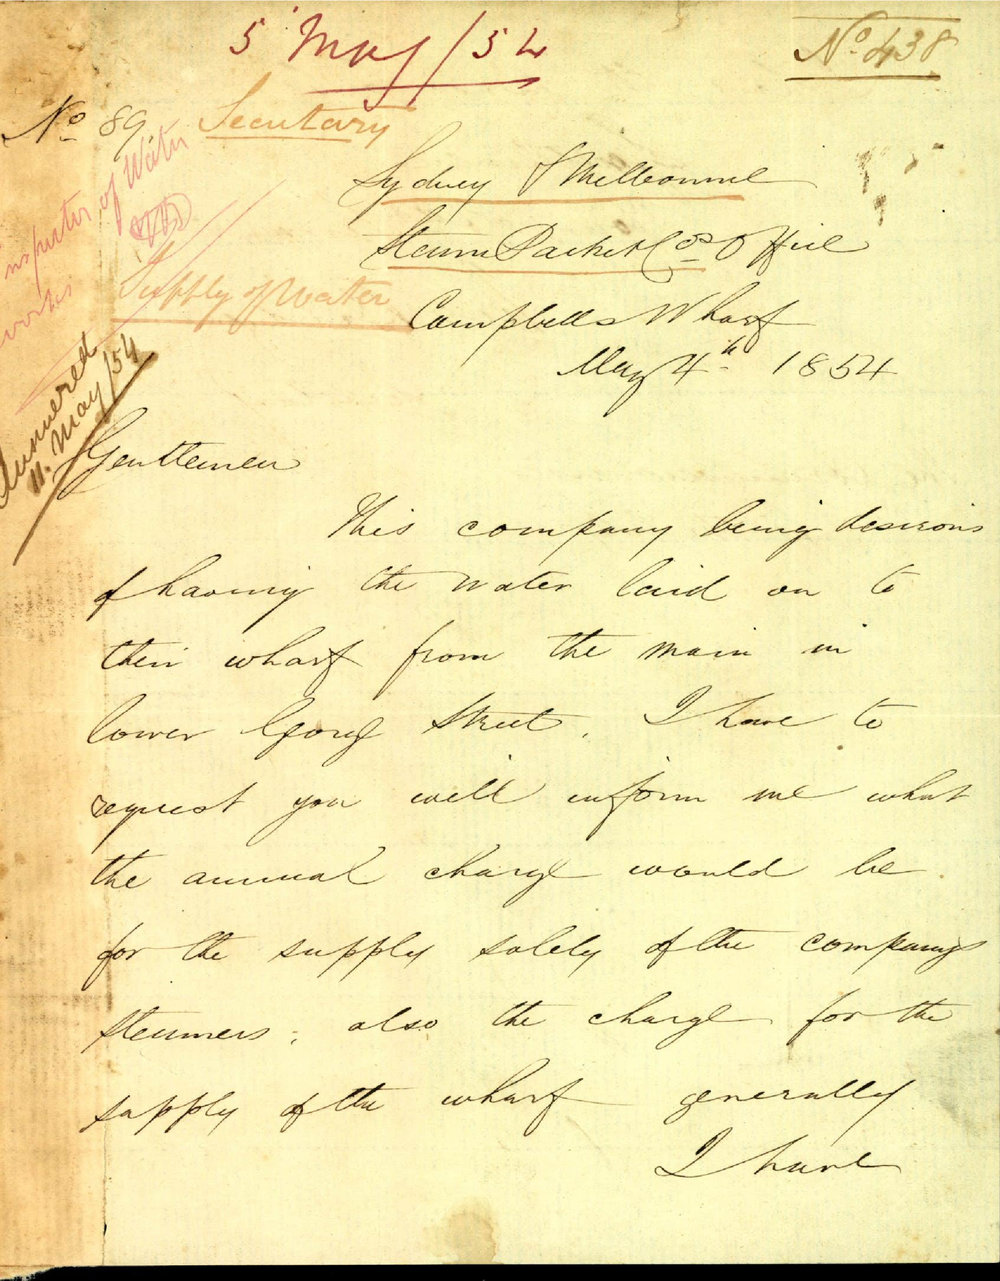 5 May/54
No 438
No 89
Secretary
Inspector of Water
works
Supply of Water
Answered
11. May/54
Sydney & Melbourne
Steam Packet Cos Office
Campbells Wharf
May 4th 1854
Gentlemen
This company being desirous
of having the water laid on to
their wharf from the main in
lower George Street, I have to
request you will inform me what
the annual charge would be
for the supply solely of the company
steamers; also the charge for the
supply of the wharf generally
I have